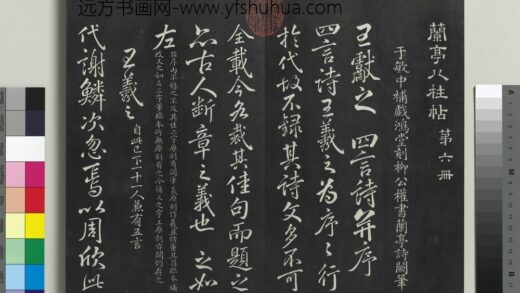 远方书画网-www.yfshuhua.com
蘭亭八柱帖 第六冊
于敏中補戲鴻堂刻柳公權書蘭亭詩闕筆
王獻之 四言詩并序
四言詩王羲之為序序行
於代故不録其詩文多不可
全載今各裁其佳句而題之
亦古人斷章之義也 之如
左
王羲之 自此已下十一人兼有五言
代謝鱗次忽焉以周欣此